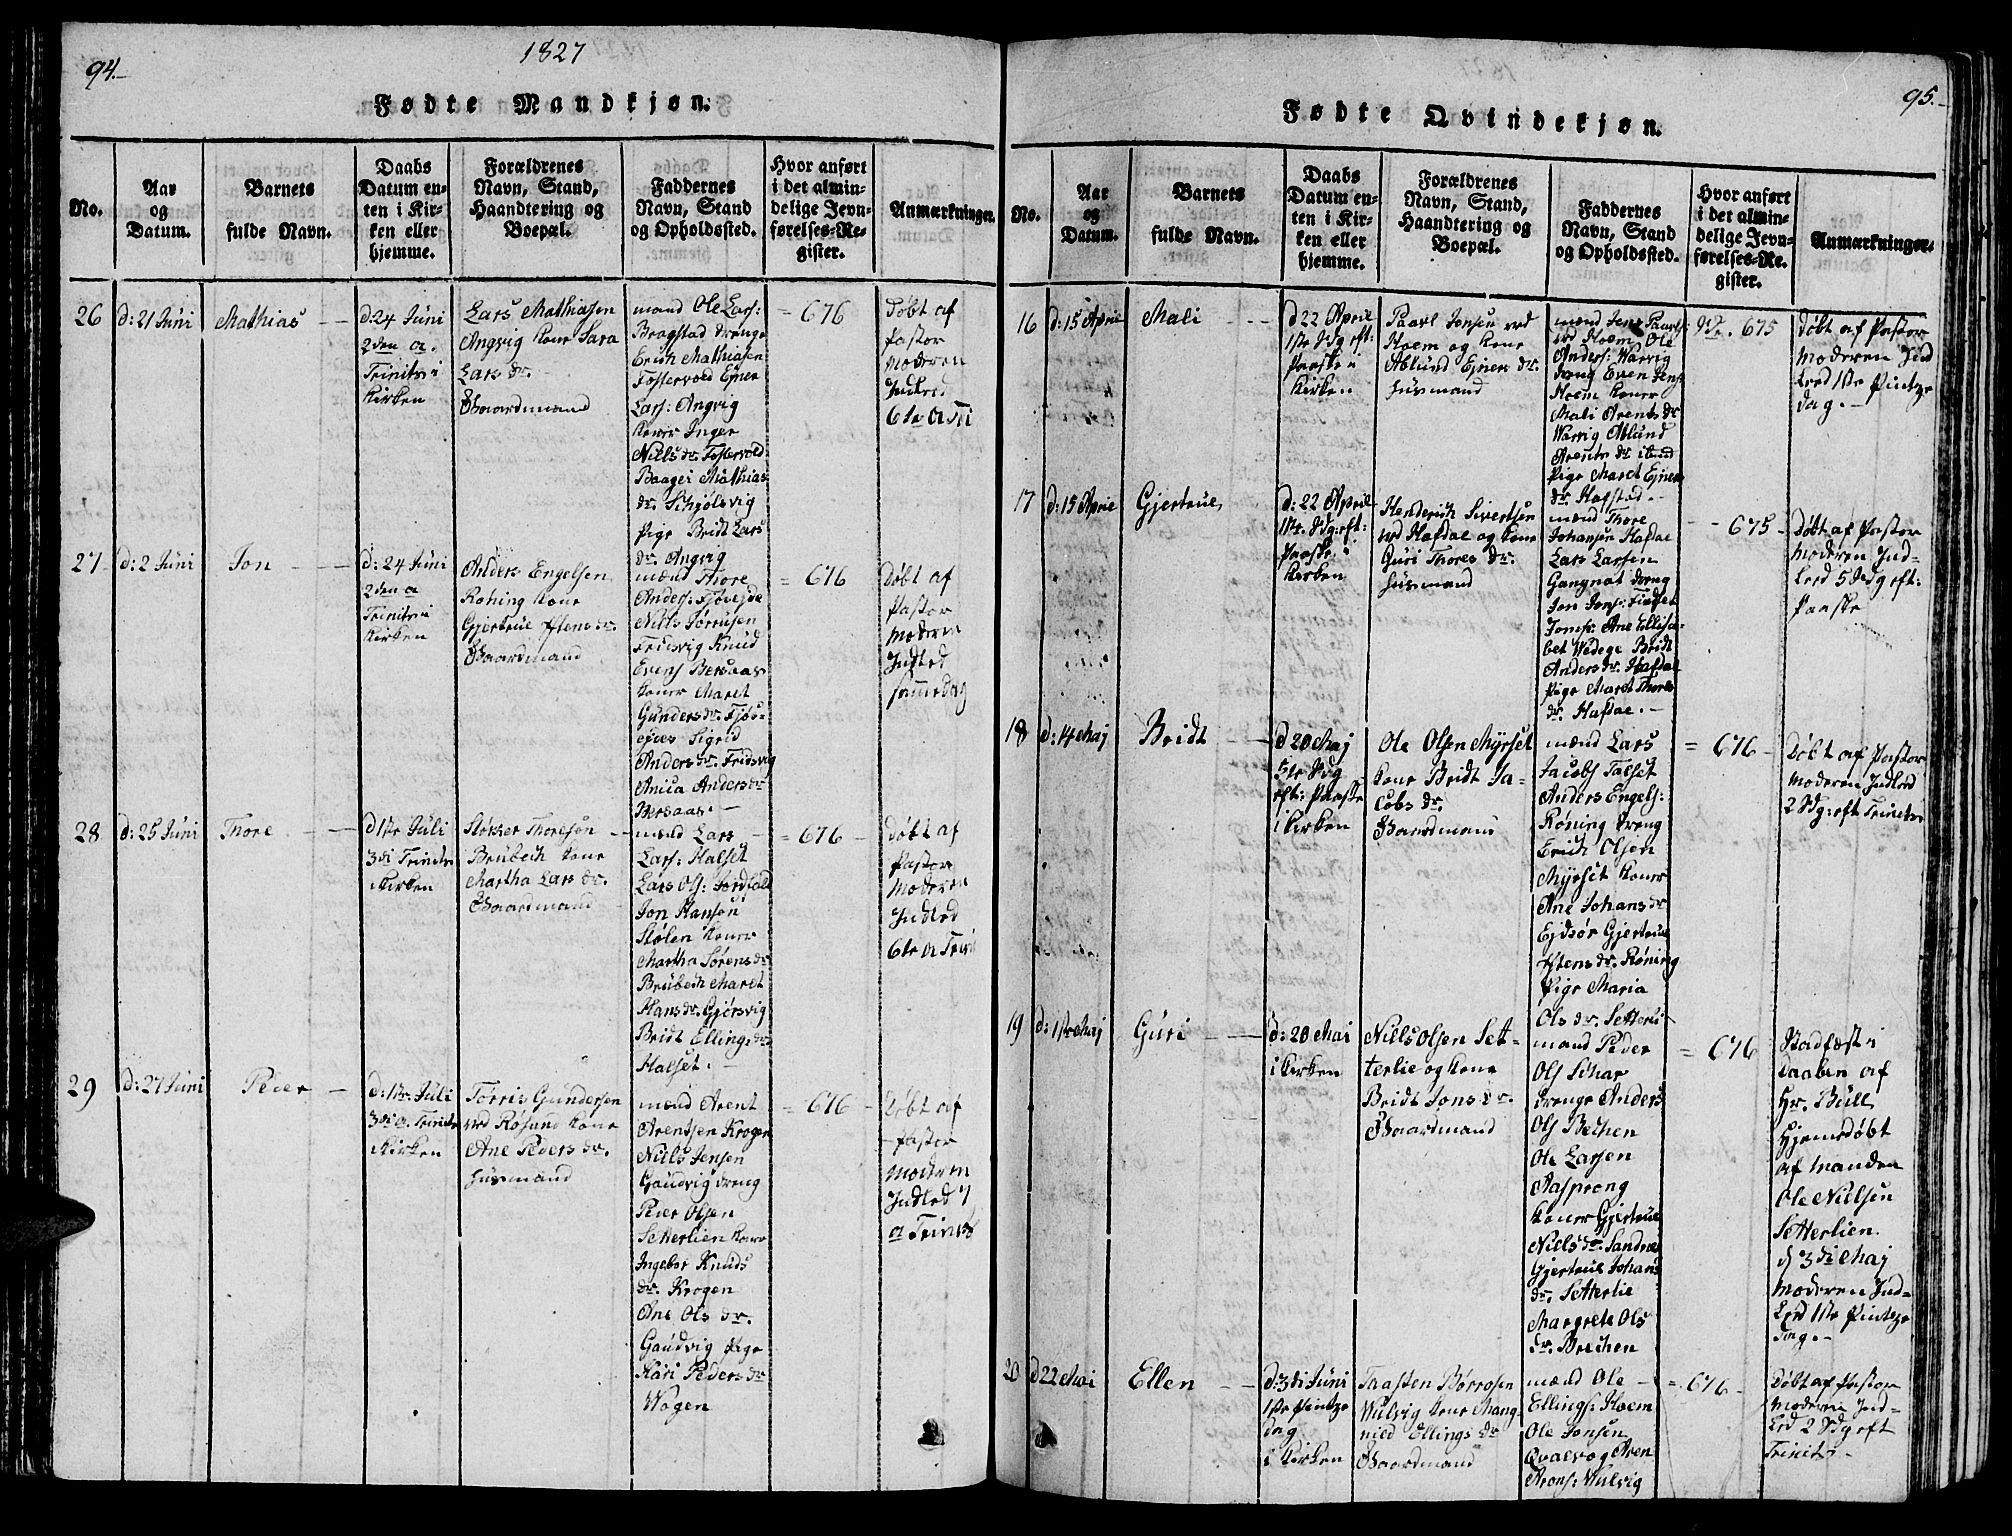 94.
1827
Fødte Mandkjøn.
No.
Aar
og
Datum.
Barnets
fulde Navn.
Daabs
Datum en-
ten i Kir-
ken eller
hjemme.
Forældrenes
Navn, Stand,
Haandtering og
Boepæl.
Faddernes
Navn, Stand
og Opholdssted.
Hvor anført
i det almin-
delige Jevn-
førelses-Re-
gister.
Anmærkninger.
26
d: 21 Juni
Mathias
d: 24 Juni
2den a.
Trinit: i
Kirken
Lars Mathiasen
Angvig Kone Sara
Lars dr.
Gaardmand
mænd Ole Lars:
Bragstad Drenge
Erich Mathiasen
Fostervold Ejner
Lars: Angvig
Koner Inger
Niels dr. Fostervold
Baager Mathias
dr. Schjølsvig
Pige Bridt Lars
dr. Angvig
= 676
Døbt af
Pastor
Moderen
Indled
6te a Tri
27
d: 2 Juni
Jon
d: 24 Juni
2den a
Trinit: i
Kirken
Anders Engelsen
Röning Kone
Gjertrue Istens dr.
Gaardmand
mænd Thore
Anders:
Niels Sørrusen
Fridsvig Knud
Evens Bersaas
Koner Maret
Gunders dr.
Sigrid
Anders dr. Fridsvig
Anica Anders dr
Bersaas.
= 676
Døbt af
Pastor
Moderen
Indled
samme dag
28
d: 25 Juni
Thore
d 1ste Juli
3di Trinit:
i Kirken
Størker Thoresøn
Brübech Kone
Martha Lars dr.
Gaardmand
mænd Lars
Lars: Halset
Lars Ols: Jordfald
Jon Hansen
Stølen Koner
Martha Sørens dr
Brübech Maret
Hans dr. Gjørsvig
Bridt Ellings dr
Halset.
= 676
Døbt af
Pastor
Moderen
Indled
6te a Trinit
29
d: 27 Juni
Peder
d: 1ste Juli
3di a. Trinit:
i Kirken
Torris Gundersen
ved Røsund Kone
Ane Peders dr.
Husmand
mænd Arent
Arentsen Krogen
Niels Jensen
Gaudvig Dreng
Peder Olsen
Setterlien Koner
Ingebor Knuds
dr. Krogen
Ane Ols dr.
Gaudvig Pige
Kari Peders dr
Wogen
= 676
Døbt af
Pastor
Moderen
Indled 7
a Trinit
95.
Fødte Qvindekjøn.
No.
Aar
og
Datum.
Barnets
fulde Navn.
Daabs
Datum en-
ten i Kir-
ken eller
hjemme.
Forældrenes
Navn, Stand,
Haandtering og
Boepæl.
Faddernes
Navn, Stand
og Opholdssted.
Hvor anført
i det almin-
delige Jevn-
førelses-Re-
gister.
Anmærkninger.
16
d: 15 April
Mali
d 22 April
1ste Sdg eft:
Paaske i
Kirken
Paavl Jensen ved
Hoem og Kone
Ablund Ejners dr.
Husmand
mænd Jens Paavls:
ved Hoem, Ole
Anders: Warvig
Dreng Even Jens:
Hoem Koner
Mali Arents dr
Warvig Ablund
Arents dr ibmd
Pige Maret Ejners
dr. Hagstad.
675
Døbt af Pastor
Moderen Ind
Leed 1ste Pintze
dag.
17
d: 15 April
Gjertrue
d: 22 April
1ste Sdg eft:
Paaske i
Kirken
Henderich Sivertsen
ved Hafdal og Kone
Guri Thores dr.
Husmand
mænd Thore
Johansen Hafdal
Lars Larsen
Gangnat Dreng
Jon Jons: Fiedset
Jomfr: Ane Ellisa-
bet Wedege Bridt
Anders dr. Hafdal
Pige Maret Thores
dr. Hafdal.
675
Døbt af Pastor
Moderen Ind-
Leed 5 Sdg eft:
Paaske
18
d: 14 Maj
Bridt
d 20 Maj
5te Sdg
eft: Paaske
i Kirken
Ole Olsen Myrset
Kone Bridt Ja-
cobs dr.
Gaardmand
mænd Lars
Jacobs Talset
Anders Engels:
Röning Dreng
Erich Olsen
Myrset Koner
Ane Johans dr
Ejdsør Gjertrue
Istens dr. Röning
Pige Maria
Ols dr. Setterli
= 676
Døbt af Pastor
Moderen Indled
2 Sdg: eft Trinit:
19
d: 1ste Maj
Guri
d: 20 Maj
i Kirken
Niels Olsen Set-
terlie og Kone
Bridt Jons dr.
Gaardmand
mænd Peder
Ols Schar
Drenge Anders
Ols Bechen
Ole Larsen
Aasprong
Koner Gjertrue
Niels dr. Sandnæs
Gjertrue Johans
dr. Setterlie
Margrete Ols
dr. Bechen
= 676
Stadfæst i
Daaben af
Hr. Büll
Hjemedøbt
af Manden
Ole Nielsen
Setterlien
d 3di Maj
Moderen Ind-
Leed 1ste Pintze
Dag.
20
d 22 Mai
Ellen
d: 3di Juni
1ste Pintze
dag
i Kirken
Taasten Børrosen
Wulvig Kone Mang-
nild Ellings dr
Gaardmand
mænd Ole
Ellings: Hoem
Ole Jonsen
Qvalvog Aven
Arons: Wulvig
= 676
Døbt af Pastor
Moderen Ind-
Led 2 Sdg eft
Trinit: